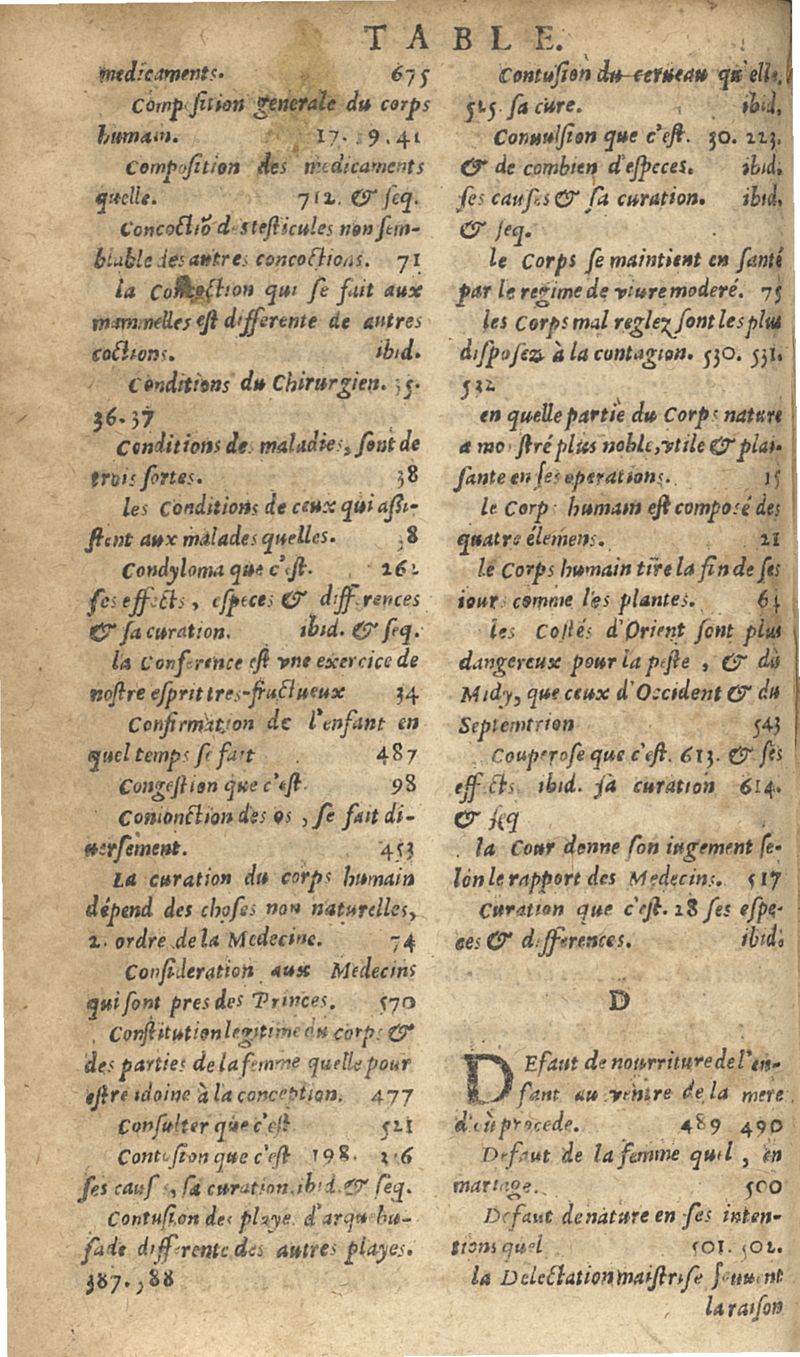 TABLE.
medicaments. 675
Composition generale du corps
humain. 17. 9. 41
Composition des medicaments
quelle. 712. & seq.
Concoctiõ des testicules non sem-
blable des autres concoctions. 71
la Concoction qui se fait aux
mammelles est differente de autres
coctions. ibid.
Conditions du Chirurgien. 35.
36. 37
Conditions des maladies, sont de
trois sortes. 38
les Conditions de ceux qui assi-
stent aux malades quelles. 38
Condyloma que c'est. 262
ses effects, especes & differences
& sa curation. ibid. & seq.
la Conference est vne exercice de
nostre esprit tres-fructueux 34
Confirmation de l'enfant en
quel temps se fait 487
Congestion que c'est. 98
Conionction des os, se fait di-
uersement. 453
La curation du corps humain
dépend des choses non naturelles,
2. ordre de la Medecine. 74
Consideration aux Medecins
qui sont pres des Princes. 570
Constitution legitime du corps &
des parties de la femme quelle pour
estre idoine à la conception. 477
Consulter que c'est 521
Contusion que c'est 198. 216
ses caus, sa curation. ibid. & seq.
Contusion des playe d'arquebu-
sade differente des autres playes.
387. 388
Contusion du cerueau qu'elle.
525. sa cure. ibid.
Conuulsion que c'est. 30. 223.
& de combien d'especes. ibid.
ses causes & sa curation. ibid.
& seq.
le Corps se maintient en santé
par le regime de viure moderé. 75
les Corps mal reglez sont les plus
disposez à la contagion. 530. 531.
532
en quelle partie du Corps nature
a monstré plus noble, vtile & plai-
sante en ses operations. 15
le Corps humain est composé des
quatre élemens. 21
le Corps humain tire la fin de ses
iours comme les plantes. 61
les Costés d'Orient sont plus
dangereux pour la peste, & du
Midy, que ceux d'Occident & du
Septemtrion 543
Couperose que c'est. 613. & ses
effects ibid. sa curation 614.
& seq
la Cour donne son iugement se-
lon le rapport des Medecins. 517
Curation que c'est. 28 ses espe-
ces & differences. ibid.
D
DEfaut de nourriture de l'en-
fant au ventre de la mere
d'où procede. 489 490
Defaut de la femme quel, en
mariage. 500
Defaut de nature en ses inten-
tions quel 501. 502.
la Delectation maistrise souuent
la raison